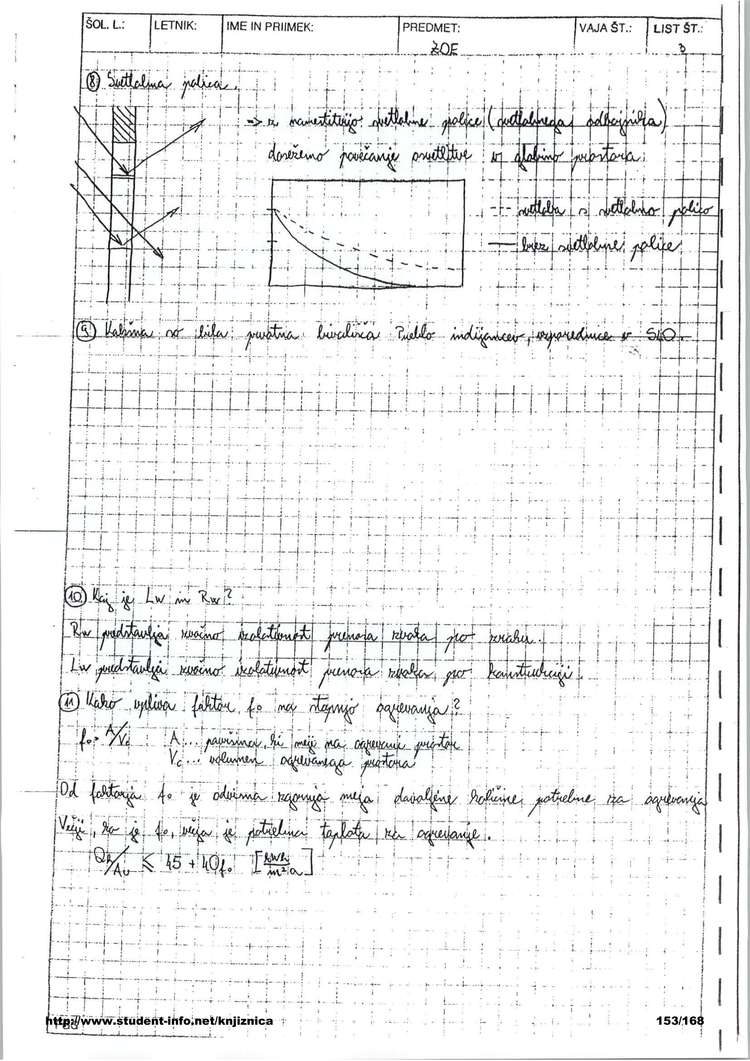 ŠOL. L.: LETNIK: IME IN PRIIMEK: PREDMET: VAJA ŠT.: LIST ŠT.:
ZOE 3
8 Svetlobna polica.
=> z namestitvijo svetlobne police (svetlobnega odbojnika)
dosežemo povečanje osvetlitve v globino prostora.
--- svetloba s svetlobno polico
— brez svetlobne police
9 Kakšna so bila prvotna bivališča Pueblo indijancev, vzporednice v SLO.
10 Kaj je Lw in Rw?
Rw predstavlja zvočno izolativnost prenosa zvoka po zraku.
Lw predstavlja zvočno izolativnost prenosa zvoka po konstrukciji.
11 Kako vpliva faktor fo na stopnjo ogrevanja?
fo = A/Ve A... površina, ki meji na ogrevani prostor
Ve... volumen ogrevanega prostora
Od faktorja fo je odvisna zgornja meja dovoljene količine potrebne za ogrevanje
Večji, ko je fo, večja je potrebna toplota za ogrevanje.
Qh/Au ≤ 45 + 40fo [kWh/m²a]
http://www.student-info.net/knjiznica 153/168